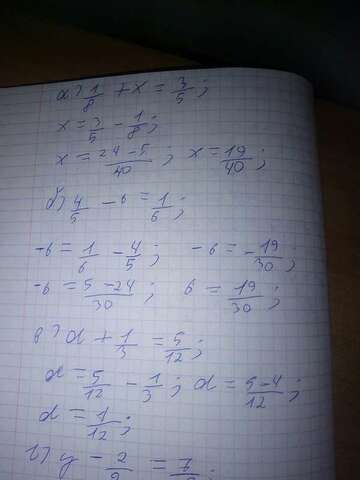 а) 1/8 + x = 3/5;
x = 3/5 - 1/8;
x = 24-5/40; x = 19/40;
б) 4/5 - в = 1/6;
-в = 1/6 - 4/5; -в = -19/30;
-в = 5-24/30; в = 19/30;
в) d + 1/3 = 5/12;
d = 5/12 - 1/3; d = 5-4/12;
d = 1/12;
г) y - 2/9 = 7/